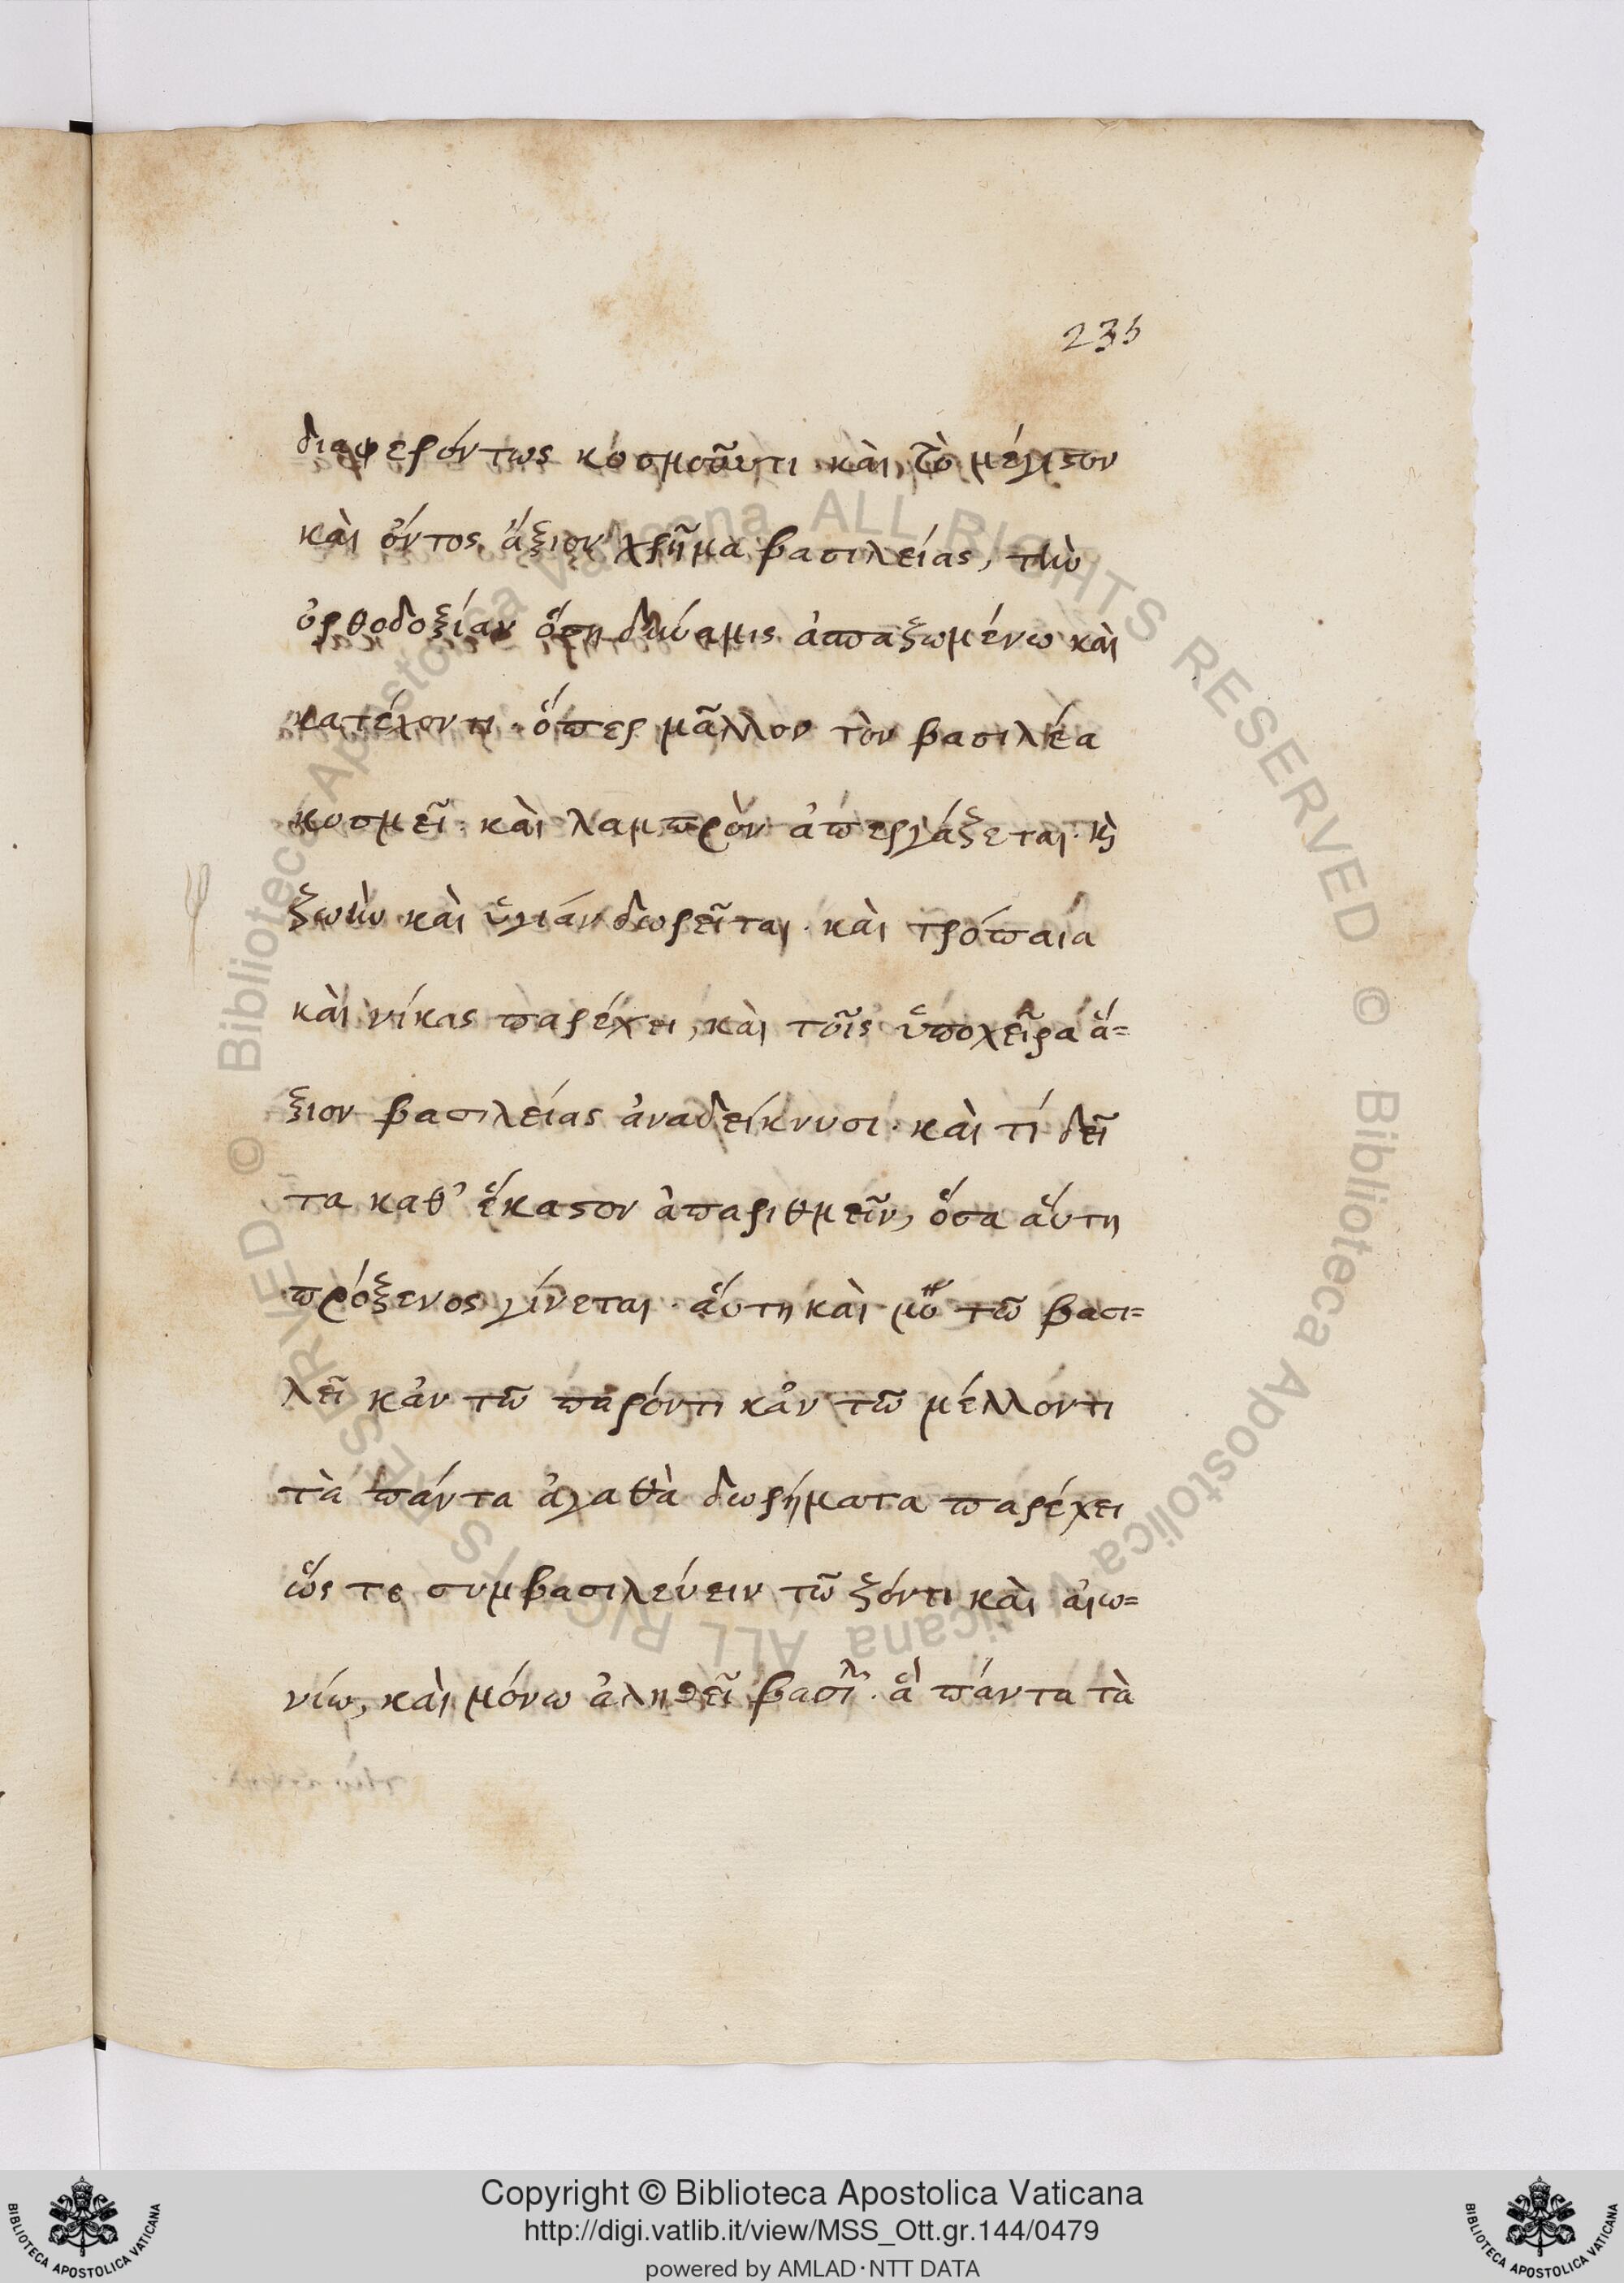 235
διαφερόντως κοσμοῦντι καὶ τὸ μέγιστον
καὶ ὄντος ἄξιον χρῆμα βασιλείας, τὴν
ὀρθοδοξίαν ὅση δύναμις ἀσπαζωμένω καὶ
κατέχοντι· ὅπερ μᾶλλον τὸν βασιλέα
κοσμεῖ· καὶ λαμπρὸν ἀπεργάζεται· κὶ
ζωὴν καὶ ὑγιάν δωρεῖται· καὶ τρόπαια
καὶ νίκας παρέχει, καὶ τοῖς ὑποχεῖρα ἄ=
ξιον βασιλείας ἀναδείκνυσι· καὶ τί δεῖ
τα καθ' ἕκαστον ἀπαριθμεῖν, ὅσα αὕτη
πρόξενος γίνεται· αὕτη καὶ μό τῶ βασι=
λεῖ κἀν τῶ παρόντι κἀν τῶ μέλλοντι
τὰ πάντα ἀγαθὰ δωρήματα παρέχει
ὥς τε συμβασιλεύειν τῶ ζόντι καὶ αἰω=
νίω, καὶ μόνω ἀληθεῖ βασιλ· ἃ πάντα τὰ
© Biblioteca Apostolica Vaticana ALL RIGHTS RESERVED © Biblioteca Apostolica Vaticana ALL RIGHTS RESERVED
Copyright © Biblioteca Apostolica Vaticana
http://digi.vatlib.it/view/MSS_Ott.gr.144/0479
powered by AMLAD·NTT DATA
BIBLIOTECA APOSTOLICA VATICANA
BIBLIOTECA APOSTOLICA VATICANA